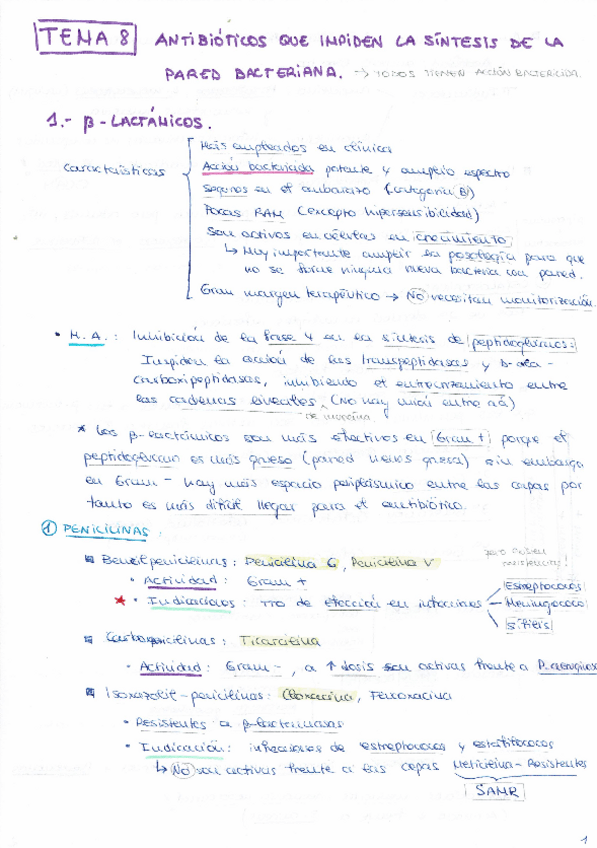 TEMA 8 ANTIBIÓTICOS QUE IMPIDEN LA SÍNTESIS DE LA
PARED BACTERIANA. → TODOS TIENEN ACCIÓN BACTERICIDA.
1.- β-LACTÁMICOS.
Características
Más empleados en clínica
Acción bactericida potente y amplio espectro
Seguros en el embarazo (categoría B)
Pocas RAM (excepto hipersensibilidad)
Son activos en células en crecimiento
↳ Muy importante cumplir la posología para que
no se forme ninguna nueva bacteria con pared.
Gran margen terapéutico → NO necesitan monitorización.
• M.A.: Inhibición de la fase 4 en la síntesis de peptidoglicano:
Impiden la acción de las transpeptidasas y D-ala-
carboxipeptidasas, inhibiendo el entrecruzamiento entre
las cadenas (No hay unión entre aá)
de mureína
* Los β-lactámicos son más efectivos en Gram + porque el
peptidoglicano es más grueso (pared menos gruesa) sin embargo
en Gram - hay más espacio periplásmico entre las capas por
tanto es más difícil llegar para el antibiótico.
① PENICILINAS.
Bencilpenicilinas: Penicilina G, Penicilina V
• Actividad: Gram +
* • Indicaciones: TTO de elección en infecciones
Estreptococos
Meningococo
Sífilis
Carboxipenicilinas: Ticarcilina
• Actividad: Gram -, a ↑ dosis son activas frente a P. aeruginosa
Isoxazolil-penicilinas: Cloxacilina,
• Resistentes a β-lactamasas
• Indicación: infecciones de estreptococos y estafilococos
↳ NO son activas frente a las cepas Meticilina-Resistentes
SAMR
1